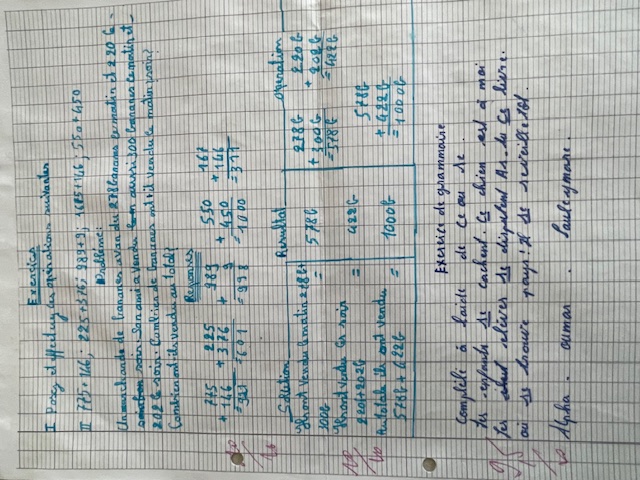 Exercice
I Posez et effectuez les opérations suivantes
II 775+146; 225+376; 989+9; 1675+146; 550+450
Problème:
Un marchande de bananes a vendu 278 bananes ce matin et 220 b
soir. Son ami a vendu aussi 300 bananes ce matin et
202 b soir. Combien de bananes ont-il vendu le matin, soir?
Combien ont-ils vendu au total?
Reponses
775 225 989 550 167
+ 146 + 376 + 9 + 450 + 146
= 921 = 601 = 998 = 1000 = 311
10
Solution Resultat Operation
Ils ont vendu le matin 278b+
300b = 578b
278b
+ 300b
= 578b
220b
+ 202b
= 422b
Ils ont vendu ce soir
220+202b = 422b
Au totale ils ont vendu
578b+422b = 1000b
578b
+ 422b
= 1000b
10
Exercice de grammaire
Complète à l'aide de ce ou se.
les enfants se cachent. Ce chien est à moi
les élèves se disputent. As-tu ce livre.
ou se trouve pays! Il se reveille tôt.
9,5
10
Alpha. oumar. Souleymane.